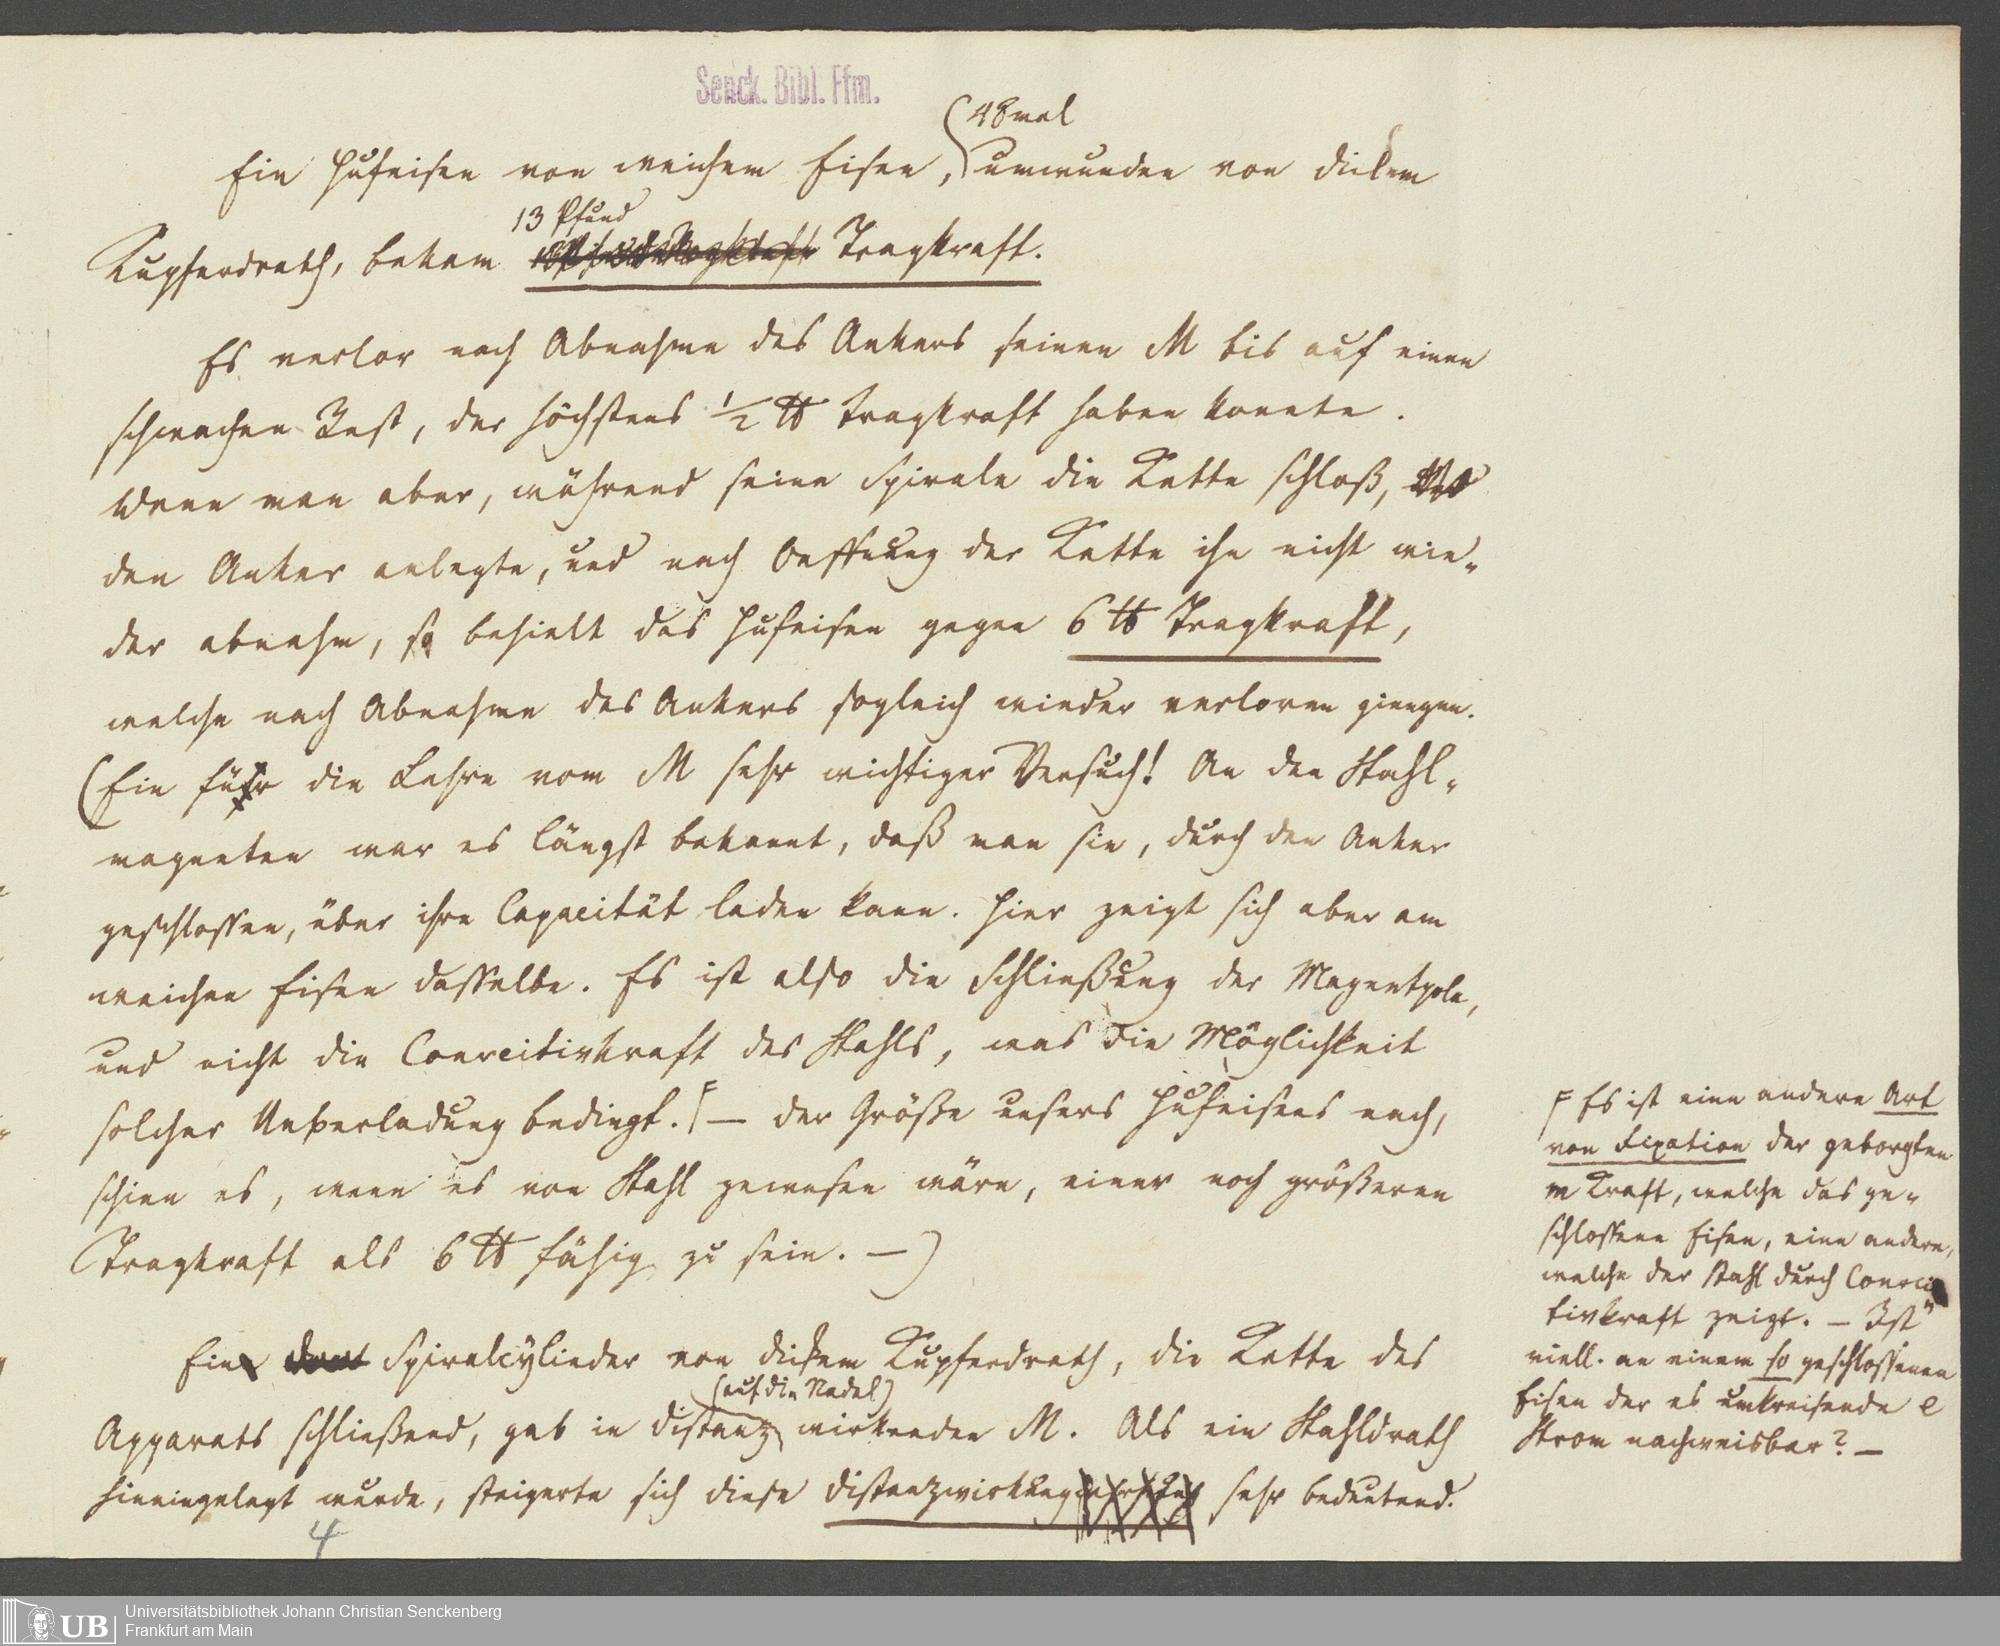 Senck. Bibl. Ffm.
48mal
Ein Hufeisen von weichem Eisen, umwunden von dickem
13 Pfund
Kupferdrath, bekam Tragkraft.
Es verlor nach Abnahme des Ankers seinen M bis auf einen
schwachen Rest, der höchstens ½ ℔ Tragkraft haben konnte.
Wenn man aber, während seine Spirale die Kette schloß,
den Anker anlegte, und nach Oeffnung der Kette ihn nicht wie-
der abnahm, so behielt das Hufeisen gegen 6 ℔ Tragkraft,
welche nach Abnahme des Ankers sogleich wieder verloren giengen.
(Ein für die Lehre vom M sehr wichtiger Versuch! An den Stahl-
magneten war es längst bekannt, daß man sie, durch den Anker
geschlossen, über ihre Capacität laden kann. Hier zeigt sich aber am
weichen Eisen dasselbe. Es ist also die Schließung der Magnetpole,
und nicht die Coercitivkraft des Stahls, was die Möglichkeit
solcher Ueberladung bedingt. F — der Größe unsers Hufeisens nach,
schien es, wenn es von Stahl gewesen wäre, einer noch größeren
Tragkraft als 6 ℔ fähig zu sein. —)
Ein Spiralcylinder von dickem Kupferdrath, die Kette des
(auf die Nadel)
Apparats schließend, gab in distanz wirkenden M. Als ein Stahldrath
hineingelegt wurde, steigerte sich diese distanzwirkung sehr bedeutend.
4
F Es ist eine andere Art
von Fixation der geborgten
m Kraft, welche das ge-
schlossene Eisen, eine andere,
welche der Stahl durch Coerci
tivkraft zeigt. — Ist
viell. an einem so geschlossenen
Eisen der es umkreisende e
Strom nachweisbar? —
Universitätsbibliothek Johann Christian Senckenberg
Frankfurt am Main
UB